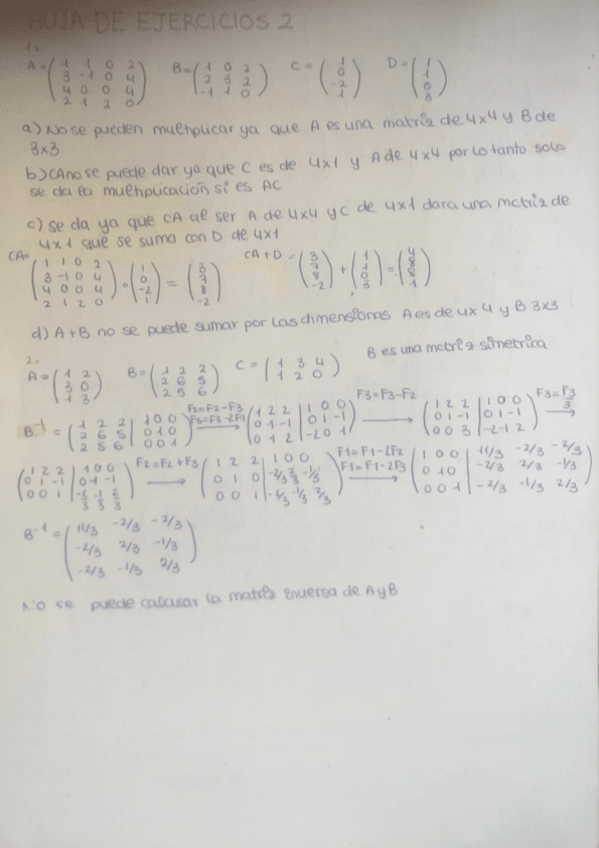 HOJA DE EJERCICIOS 2
1.
A = ( 1 1 0 2 / 3 -1 0 4 / 4 0 0 4 / 2 1 2 0 ) B = ( 1 0 2 / 2 3 2 / -1 1 0 ) C = ( 1 / 0 / -2 / 1 ) D = ( 1 / 1 / 0 / 3 )
a) No se pueden multiplicar ya que A es una matriz de 4x4 y B de
3x3
b) CA no se puede dar ya que C es de 4x1 y A de 4x4 por lo tanto solo
se da la multiplicación si es AC
c) se da ya que CA al ser A de 4x4 y C de 4x1 dara una matriz de
4x1 que se suma con D de 4x1
CA = ( 1 1 0 2 / 3 -1 0 4 / 4 0 0 4 / 2 1 2 0 ) · ( 1 / 0 / -2 / 1 ) = ( 3 / 7 / 8 / -2 ) CA + D = ( 3 / 7 / 8 / -2 ) + ( 1 / 1 / 0 / 3 ) = ( 4 / 8 / 8 / 1 )
d) A+B no se puede sumar por las dimensiones A es de 4x4 y B 3x3
2.
A = ( 1 2 / 3 0 / 1 3 ) B = ( 1 2 2 / 2 6 5 / 2 5 6 ) C = ( 1 3 4 / 1 2 0 ) B es una matriz simetrica
B-1 = ( 1 2 2 | 1 0 0 / 2 6 5 | 0 1 0 / 2 5 6 | 0 0 1 ) F2=F2-F3 F3=F3-2F1 ( 1 2 2 | 1 0 0 / 0 1 -1 | 0 1 -1 / 0 1 2 | -2 0 1 ) F3=F3-F2 ( 1 2 2 | 1 0 0 / 0 1 -1 | 0 1 -1 / 0 0 3 | -2 -1 2 ) F3=F3/3
( 1 2 2 | 1 0 0 / 0 1 -1 | 0 1 -1 / 0 0 1 | -2/3 -1/3 2/3 ) F2=F2+F3 ( 1 2 2 | 1 0 0 / 0 1 0 | -2/3 2/3 -1/3 / 0 0 1 | -2/3 -1/3 2/3 ) F1=F1-2F2 F1=F1-2F3 ( 1 0 0 | 11/3 -2/3 -2/3 / 0 1 0 | -2/3 2/3 -1/3 / 0 0 1 | -2/3 -1/3 2/3 )
B-1 = ( 11/3 -2/3 -2/3 / -2/3 2/3 -1/3 / -2/3 -1/3 2/3 )
No se puede calcular la matriz inversa de A y B